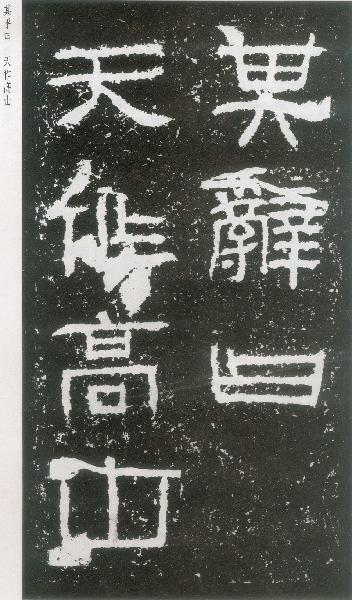 其辭曰
天作高山
其曰 天作高山